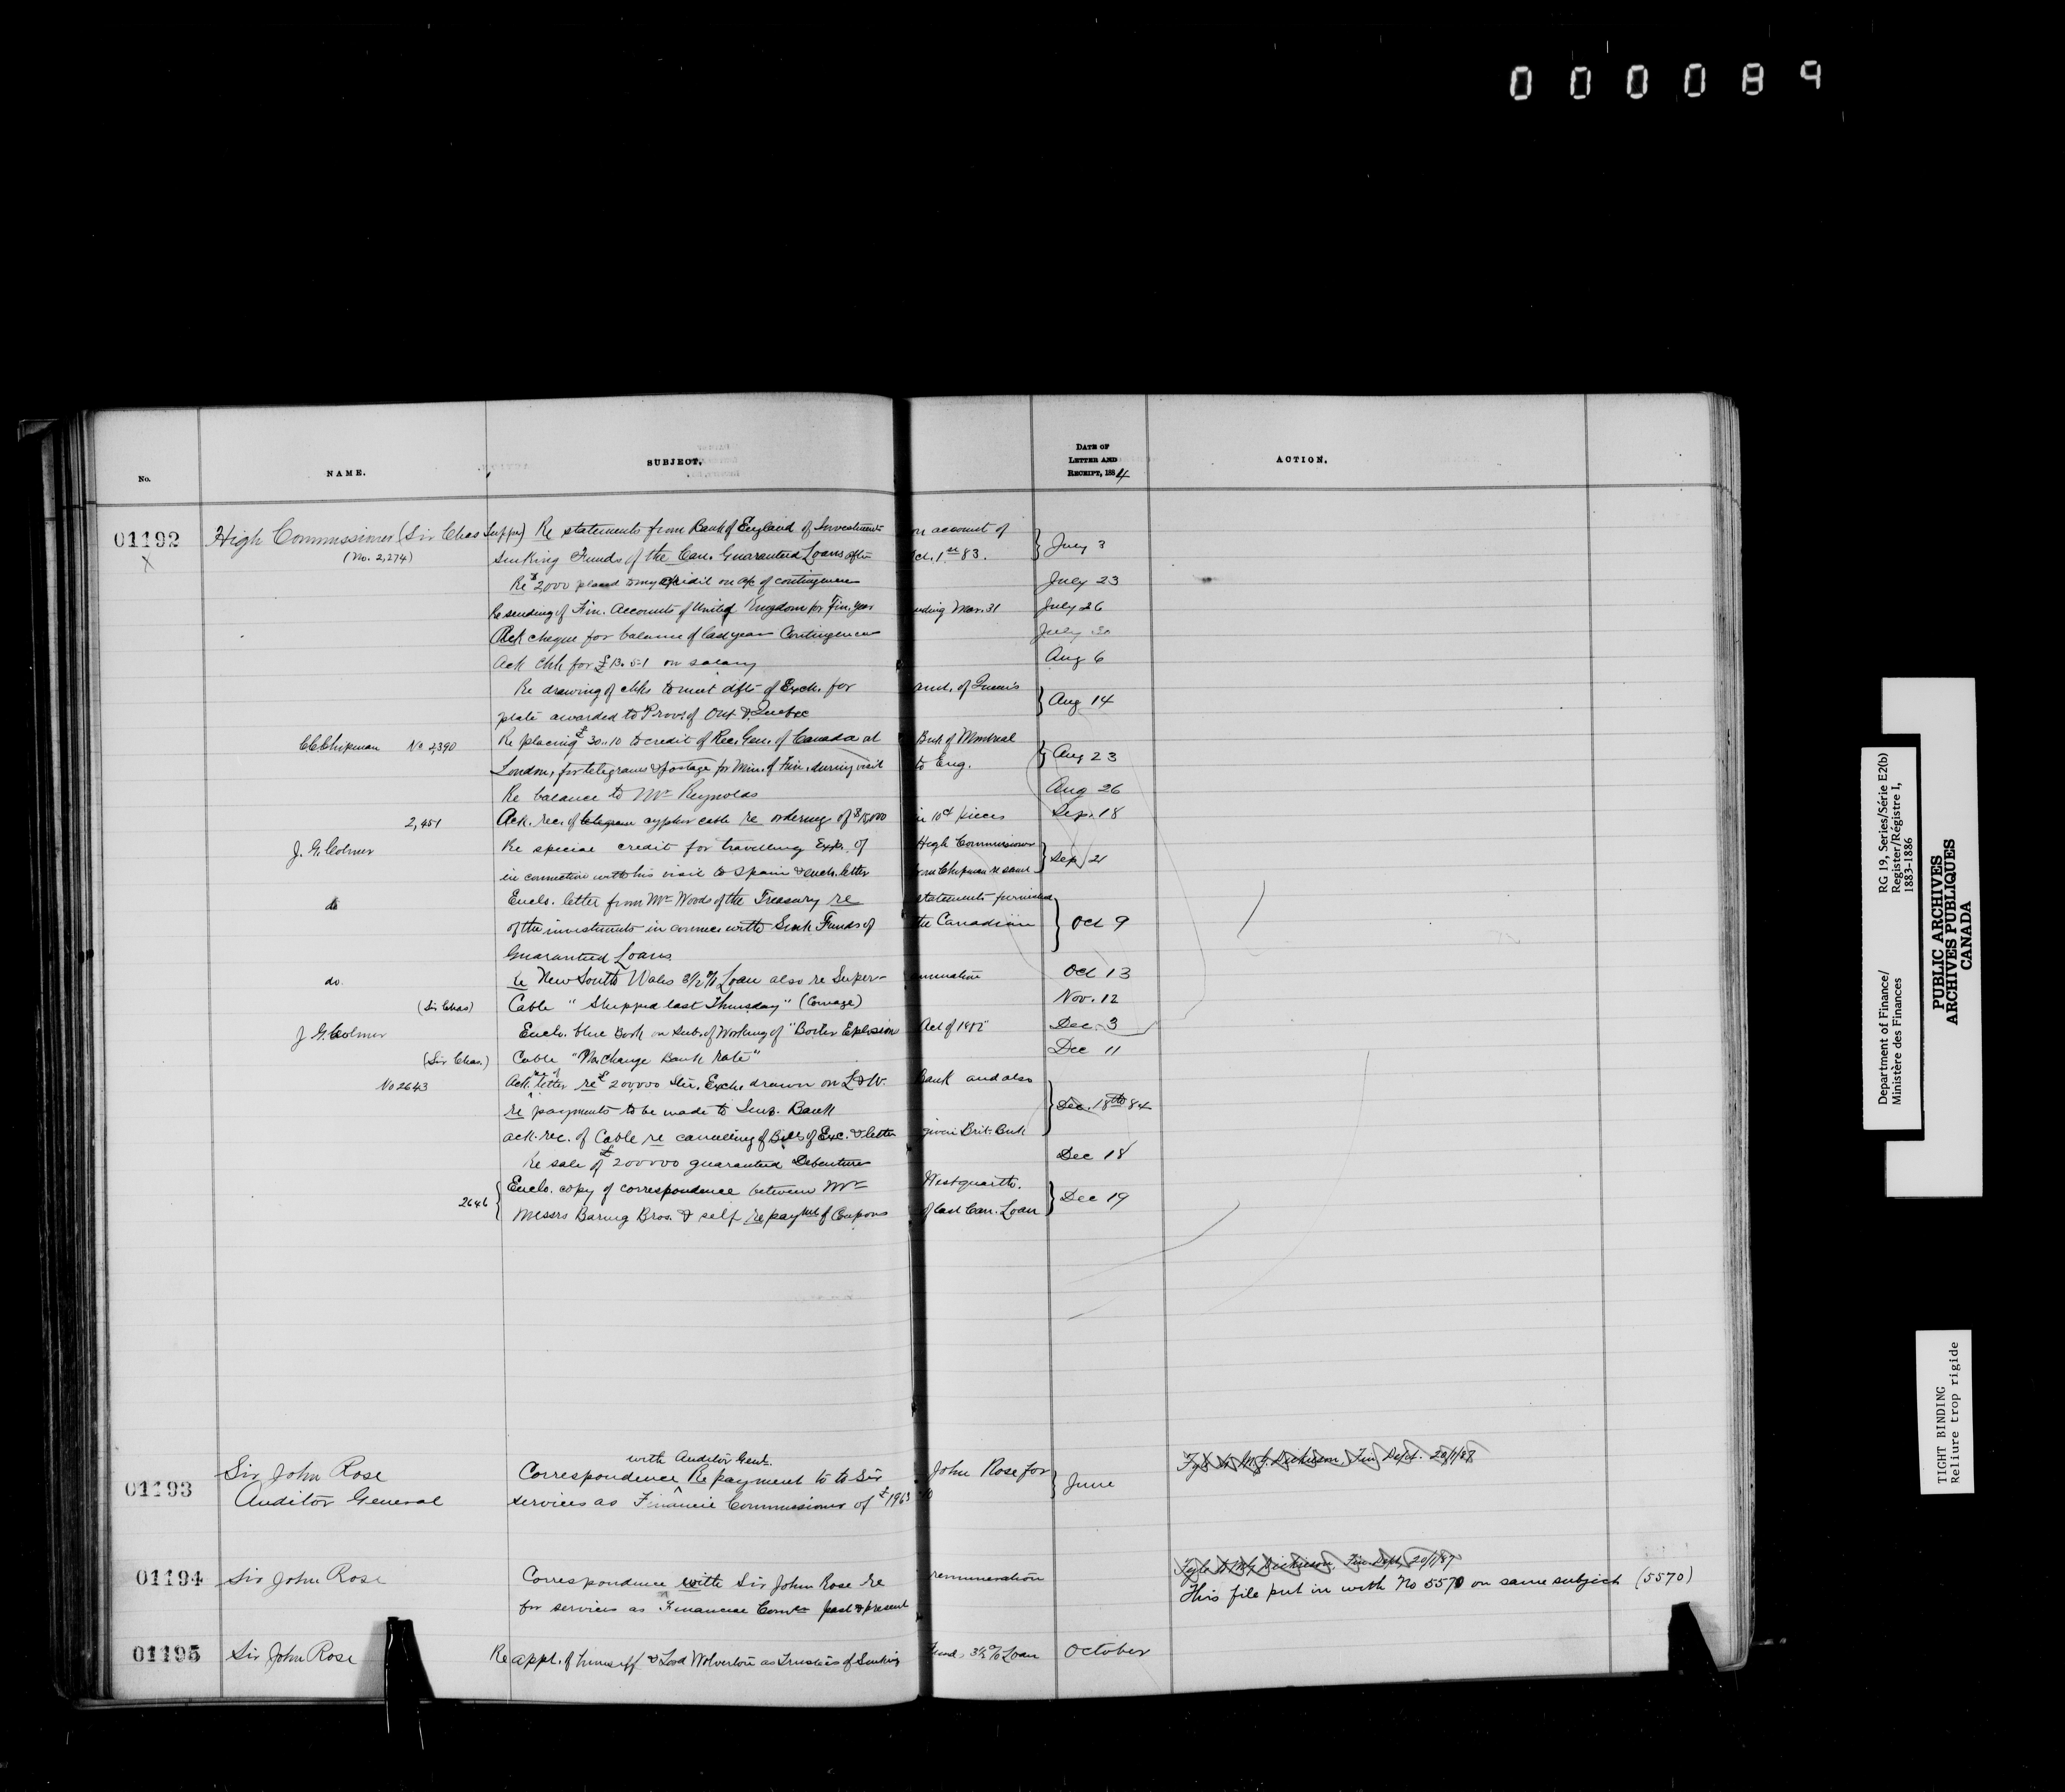 000089
No.
NAME.
SUBJECT.
DATE OF
LETTER AND
RECEIPT, 1884
ACTION.
01192 High Commissioner (Sir Chas Tupper) Re statements from Bank of England of Investments on account of
X (No. 2,274) Sinking Funds of the Can. Guaranteed Loans after Oct. 1st 83. } July 3
Re £2,000 placed to my credit on a/c of contingencies July 23
Re sending of Fin. Accounts of United Kingdom for Fin. year ending Mar. 31 July 26
Ack cheque for balance of last years Contingencies July 30
Ack chk for £13.5.1 on salary Aug 6
Re drawing of chks to meet dfts of Exch. for amt. of
plate awarded to Prov. of Ont & Quebec } Aug 14
C C Chipman No 2,390 Re placing £30..10 to credit of Rec. Gen. of Canada at Bnk of Montreal
London, for telegrams & postage for Min. of Fin. during visit to Eng. } Aug 23
Re balance to Mr Reynolds Aug 26
2,451 Ack. rec. of cypher cable re ordering of $15,000 in 10ct pieces Sep. 18
J. G. Colmer Re special credit for travelling Exps. of High Commissioner
in connection with his visit to Spain & encl. letter from Chipman re same } Sep 21
do Enclo. letter from Mr Woods of the Treasury re statements furnished
of the investments in connec. with Sink Funds of the Canadian } Oct 9
Guaranteed Loans
do. Re New South Wales 3½% Loan also re Super-annuation Oct 13
(Sir Chas) Cable "Shipped last Thursday" (Coinage) Nov. 12
J G Colmer Enclo. blue Book on sub. of Working of "Boiler Eplosion Act of 1882" Dec. 3
(Sir Chas.) Cable "No change Bank rate" Dec 11
No 2643 Ack. rec of letter re £200,000 Ster. Exche drawn on L & W. Bank and also
re payments to be made to Bank } Dec. 18th 84
ack. rec. of Cable re cancelling of Bills of Exc. & letter given Brit. Bnk
Re sale of £200000 guaranteed Debentures Dec 18
2646 { Enclo. copy of correspondence between Mr Westgarth.
Messrs Baring Bros. & self re paymt of Coupons of last Can. Loan } Dec 19
with Auditor Genl.
01193 Sir John Rose Correspondence Re payment to to Sir John Rose for Fyle to M.G. Dickieson, Fin Dept. 20/1/87
Auditor General services as Financie Commissioner of £1963 } June
01194 Sir John Rose Correspondence with Sir John Rose re remuneration Fyle to M.G. Dickieson, Fin. Dept, 20/1/87
for services as Financial Comr past & present This file put in with No 5570 on same subject (5570)
01195 Sir John Rose Re appt. of himself & Lord Wolverton as Trustees of Sinking Fund, 3½% Loan October
Department of Finance/
Ministère des Finances
RG 19, Series/Série E2(b)
Register/Régistre I,
1883-1886
PUBLIC ARCHIVES
ARCHIVES PUBLIQUES
CANADA
TIGHT BINDING
Reliure trop rigide